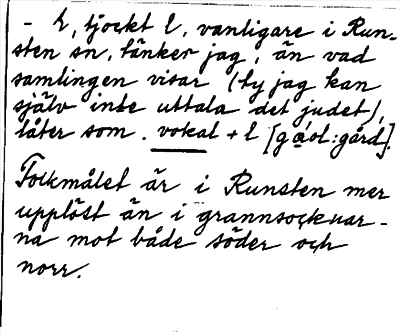 - ɫ, tjockt l, vanligare i Run-
sten sn, tänker jag, än vad
samlingen visar (ty jag kan
själv inte uttala det judet),
låter som. vokal + l [gaol:gård].
Folkmålet är i Runsten mer
upplöst än i grannsocknar-
na mot både söder och
norr.